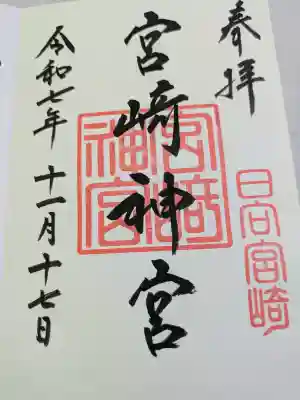 奉拝
日向宮崎
宮崎神宮
宮﨑神宮
令和七年 十一月十七日